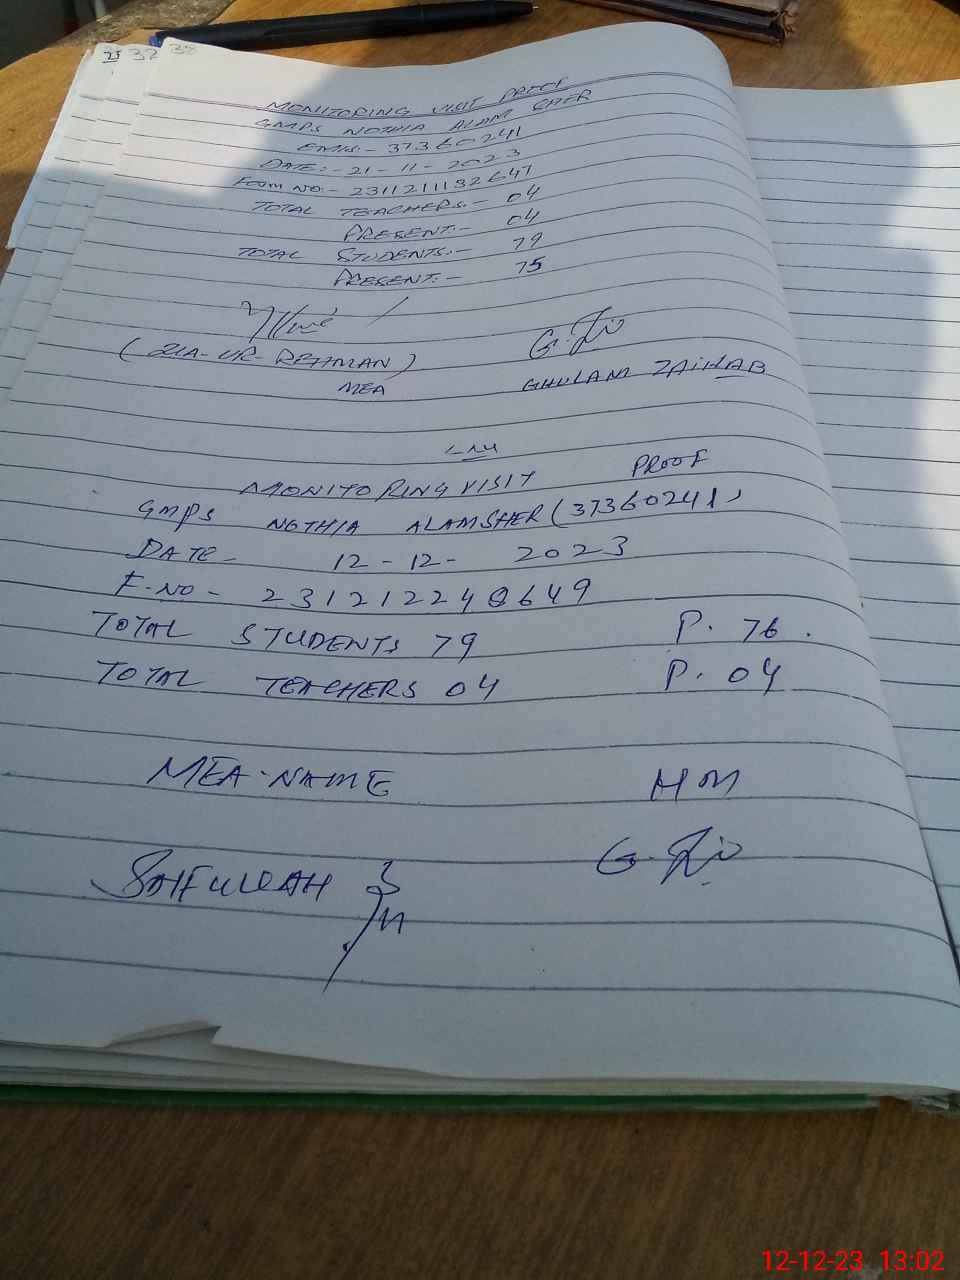 37 38
MONITORING VISIT PROOF
GMPS NOTHIA ALAM SHER
EMIS:- 37360241
DATE:- 21-11-2023
FORM NO:- 2311211132647
TOTAL TEACHERS:- 04
PRESENT:- 04
TOTAL STUDENTS:- 79
PRESENT:- 75
(ZIA-UR-REHMAN)
MEA
GHULAM ZAINAB
MONITORING VISIT PROOF
GMPS NOTHIA ALAMSHER (37360241)
DATE- 12-12-2023
F-NO- 2312122408649
TOTAL STUDENTS 79 P. 76.
TOTAL TEACHERS 04 P. 04
MEA-NAME HM
SAIFULLAH
12-12-23 13:02